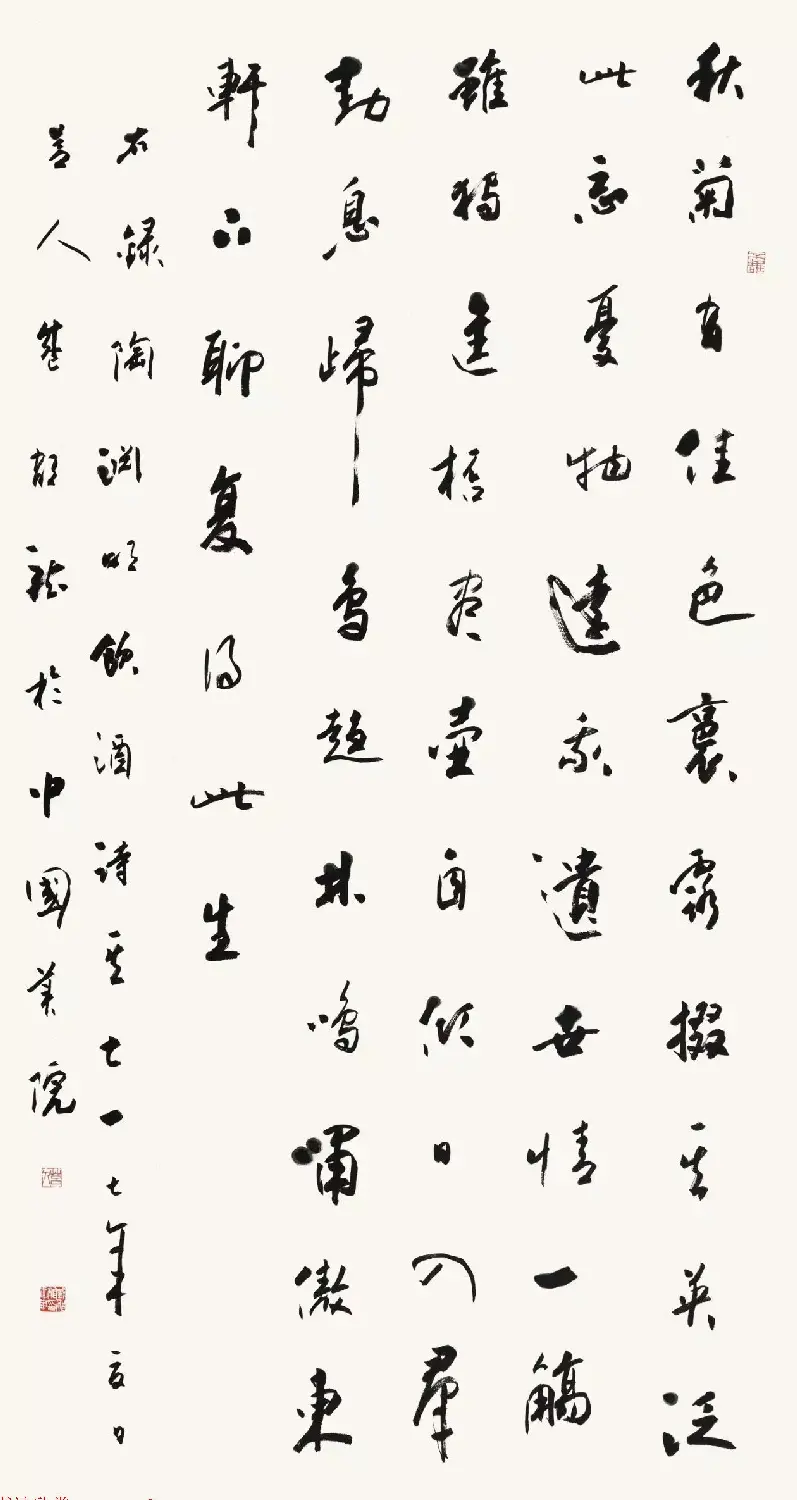 秋菊有佳色裛露掇其英泛
此忘憂物達我遺世情一觴
雖獨進桮盡壺自傾日入羣
動息歸鳥趨林鳴嘯傲東
軒下聊复得此生
右錄陶淵明飲酒詩其七一七年夏日
人於中國美院